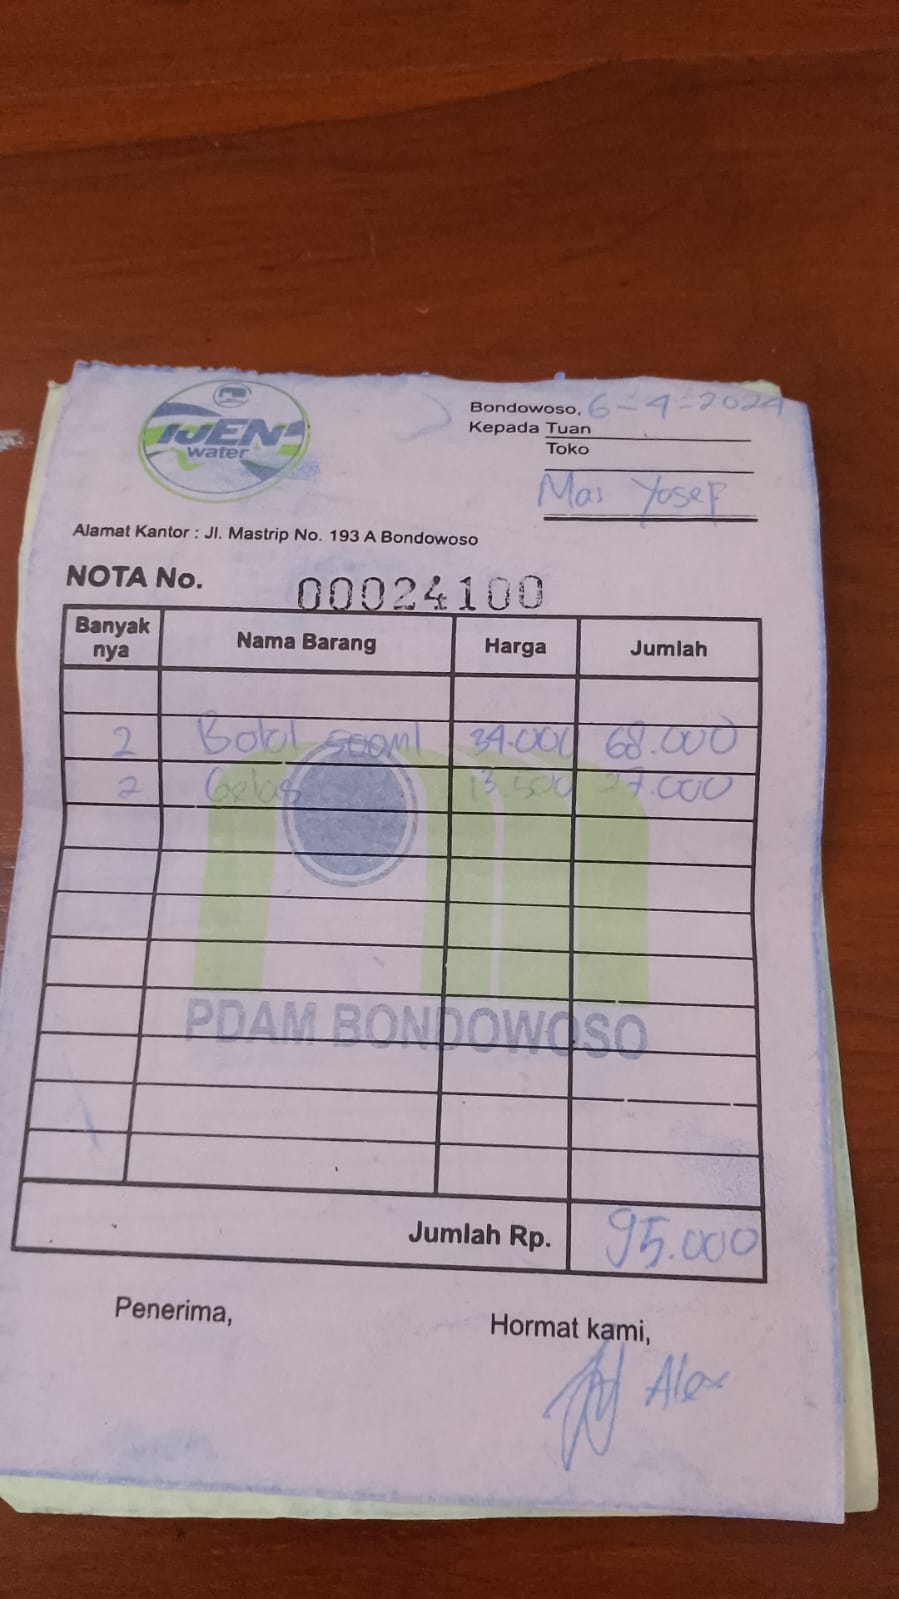 IJEN
water
Bondowoso, 6-4-2024
Kepada Tuan
Toko
Mas Yosef
Alamat Kantor : Jl. Mastrip No. 193 A Bondowoso
NOTA No. 00024100
Banyak nya Nama Barang Harga Jumlah
2 Botol 500ml 34.000 68.000
2 Gelas 13.500 27.000
PDAM BONDOWOSO
Jumlah Rp. 95.000
Penerima, Hormat kami,
Alex